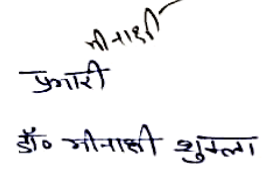 मीनाक्षी
प्रभारी
डॉ० मीनाक्षी शुक्ला